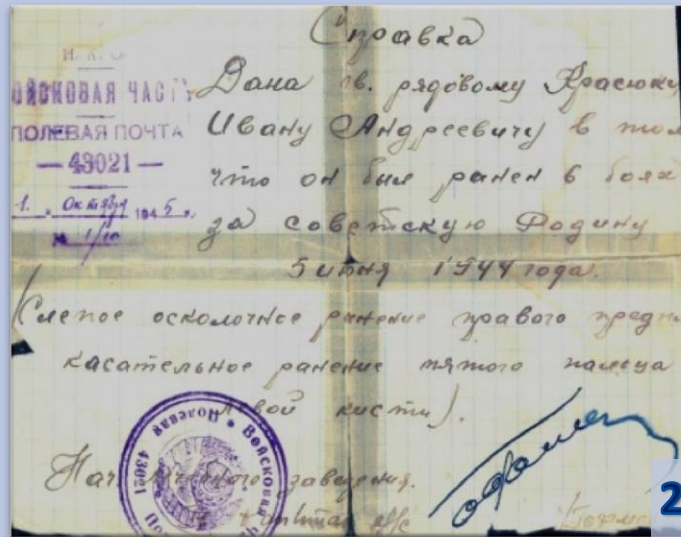 Справка
ВОЙСКОВАЯ ЧАСТЬ
ПОЛЕВАЯ ПОЧТА
— 43021 —
1. Октября 1945 г.
№ 1/10
Дана гв. рядовому Красюку
Ивану Андреевичу в том
что он был ранен в боях
за советскую Родину
5 июня 1944 года.
(Слепое осколочное ранение правого предпл
касательное ранение пятого пальца
левой кисти).
Нач. заведения.
Полевая * Войсковая
43021
2